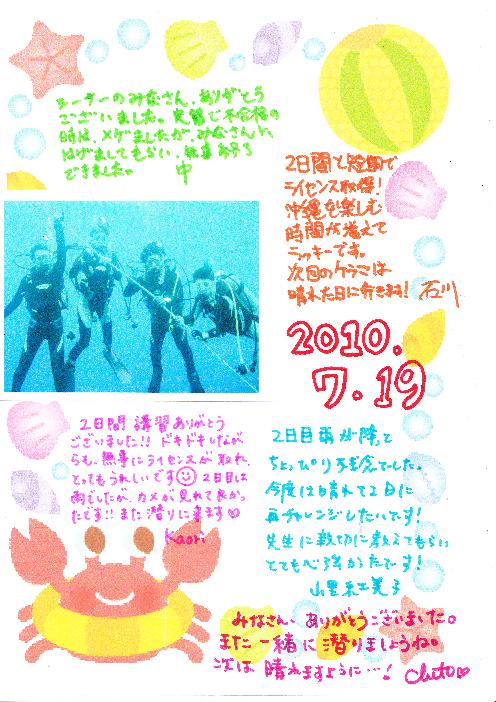 シーサーのみなさん、ありがとう
ございました。学習で不合格の
時は、メゲましたが、みなさんに
はげましてもらい、無事終了
できました。 中
2日間と短期で
ライセンス取得!
沖縄を楽しむ
時間が増えて
ラッキーです。
次回のケラマは
晴れた日に行きます! 石川
2010.
7.19
2日間講習ありがとう
ございました!! ドキドキしなが
らも、無事にライセンスが取れ、
とってもうれしいです 2日目は
雨でしたが、カメが見れて良かっ
たです!! また潜りに来ます♡
Kaori
2日目雨が降って
ちょっぴり残念でした。
今度は晴れて2日に
再チャレンジしたいです!
先生に親切に教えてもらい
とても心強かったです!
みなさん、ありがとうございました。
また一緒に潜りましょうね。
次は晴れますように…!